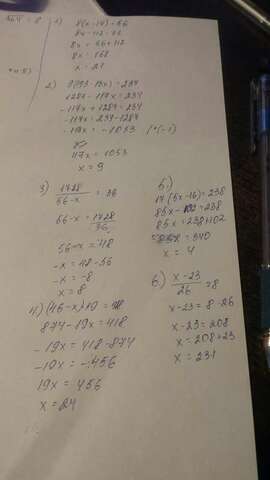 1) 8(x-14) = 56
8x - 112 = 56
8x = 56+112
8x = 168
x = 21
2) 9(143-13x) = 234
1287 - 117x = 234
-117x + 1287 = 234
-117x = 234-1287
-117x = -1053 | *(-1)
117x = 1053
x = 9
3) 1728/56-x = 36
56-x = 1728/36
56-x = 48
-x = 48-56
-x = -8
x = 8
4) (46-x)*19 = 418
874-19x = 418
-19x = 418-874
-19x = -456
19x = 456
x = 24
5.)
17(5x-16) = 238
85x - 102 = 238
85x = 238+102
85x = 340
x = 4
6.) x-23/26 = 8
x-23 = 8·26
x-23 = 208
x = 208+23
x = 231